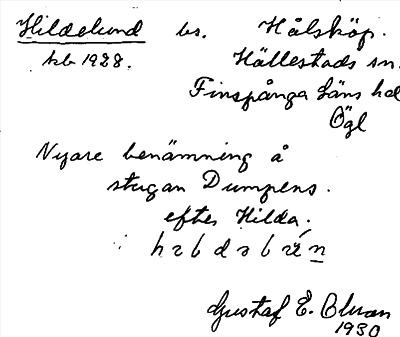 Hildelund bs. Hålsköp.
kb 1928. Hällestads sn.
Finspånga läns hd
Ögl
Nyare benämning å
stugan Dumpens.
efter Hilda.
Gustaf E.
1930